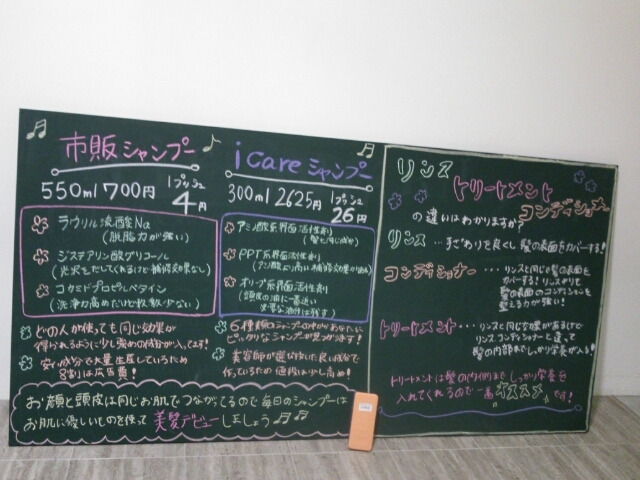 市販シャンプー
550ml 700円 1プッシュ 4円
ラウリル硫酸Na
(脱脂力が強い)
ジステアリン酸グリコール
(光沢をだしてくれるけど補修効果ない)
コカミドプロピルベタイン
(洗浄力高めだけど
少ない)
どの人が使っても同じ効果が
得られるように少し強めの成分が入ってます!
安い成分で大量生産しているため
8割は広告費!
i Care シャンプー
300ml 2625円 1プッシュ 26円
アミノ酸系界面活性剤
(髪と同じ成分)
PPT系界面活性剤
(アミノ酸より高い補修効果が
オリーブ系界面活性剤
(頭皮の油に一番近い
必要な油分は残す)
6種類のシャンプーの中からあなたに
ピッタリなシャンプーが見つかります!
美容師が選び抜いた良い成分で
作っているため値段は少し高め!
お顔と頭皮は同じお肌でつながってるので毎日のシャンプーは
お肌に優しいものを使って美髪デビューしましょう
リンス
トリートメント
コンディショナー
の違いはわかりますか?
リンス…手ざわりを良くし髪の表面をカバーする!
コンディショナー・・・リンスと同じく髪の表面を
カバーする!リンスよりも
髪の表面のコンディションを
整える力が強い!
トリートメント・・・リンスと同じ効果があるけど
リンスコンディショナーと違って
髪の内部までしっかり栄養が入る!
トリートメントは髪の内側までしっかり栄養を
入れてくれるので一番オススメです!